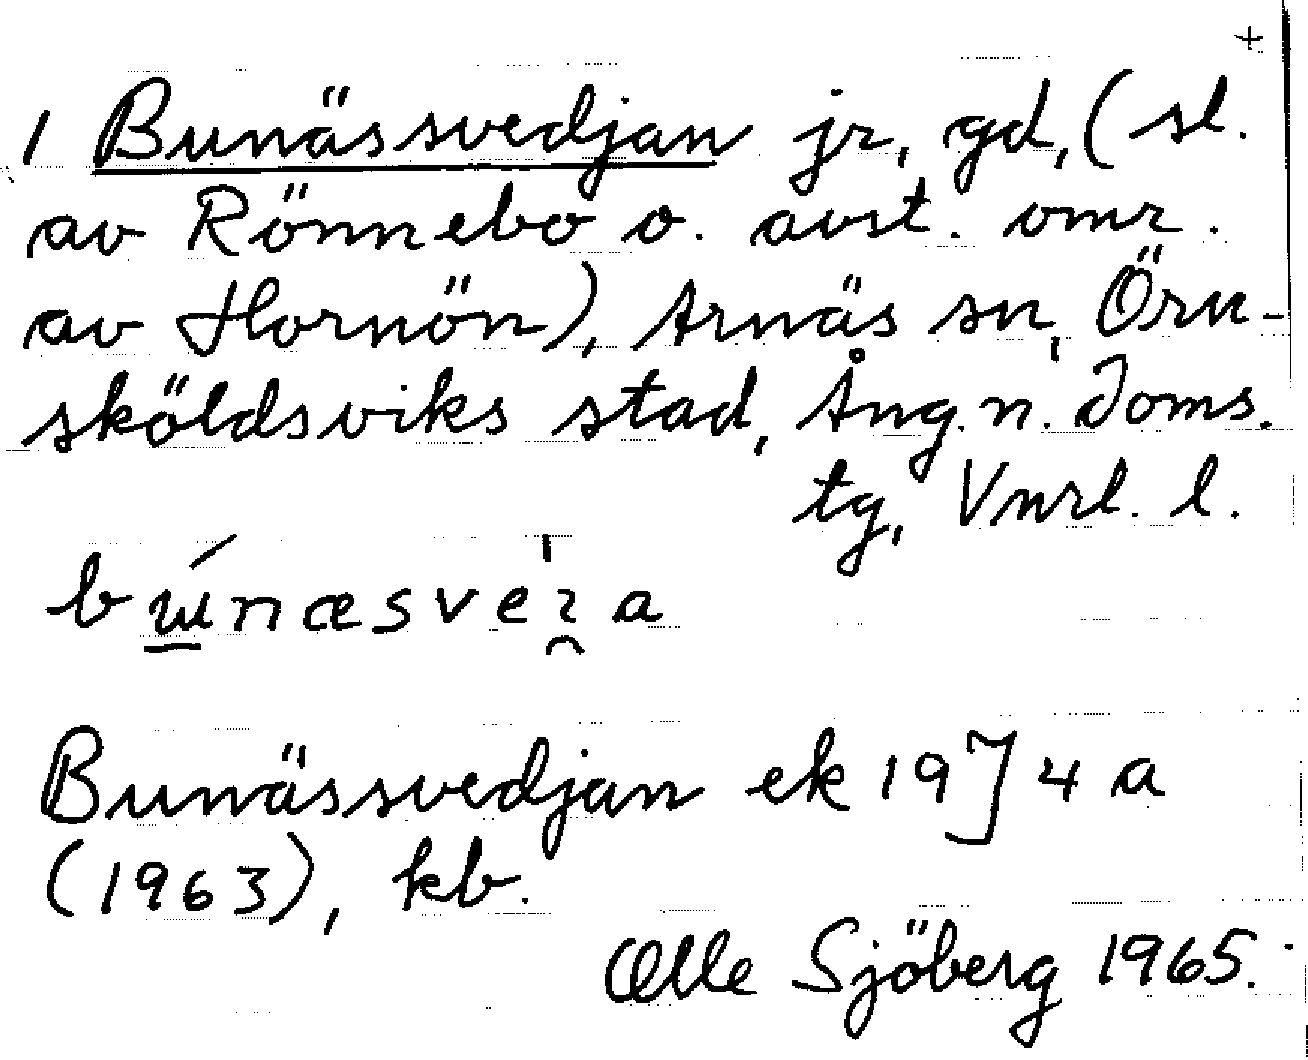 +
1 Bunässvedjan jr, gd, (sl.
av Rönnebo o. avst. omr.
av Hornön), Arnäs sn, Örn-
sköldsviks stad, Ång. n. doms.
tg, Vnrl. l.
Bunässvedjan ek 19J4 a
(1963), kb.
Olle Sjöberg 1965.